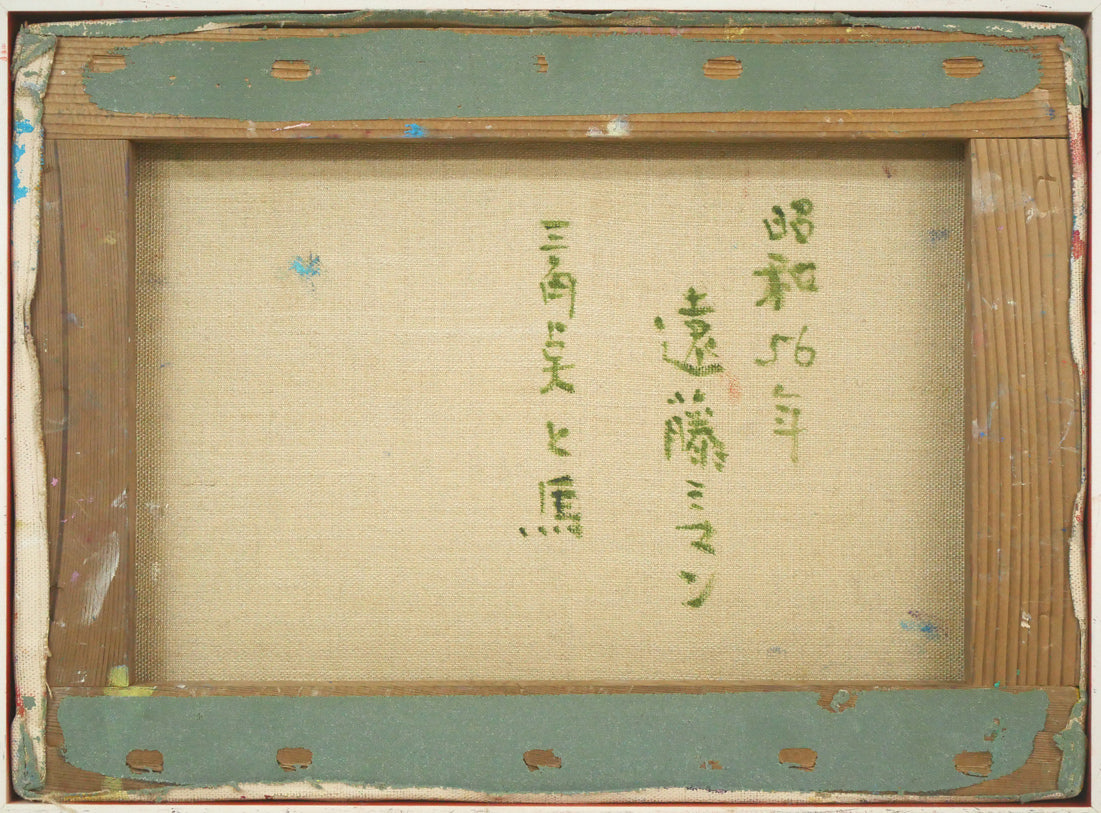 昭和56年
遠藤ミマン
三角美と馬